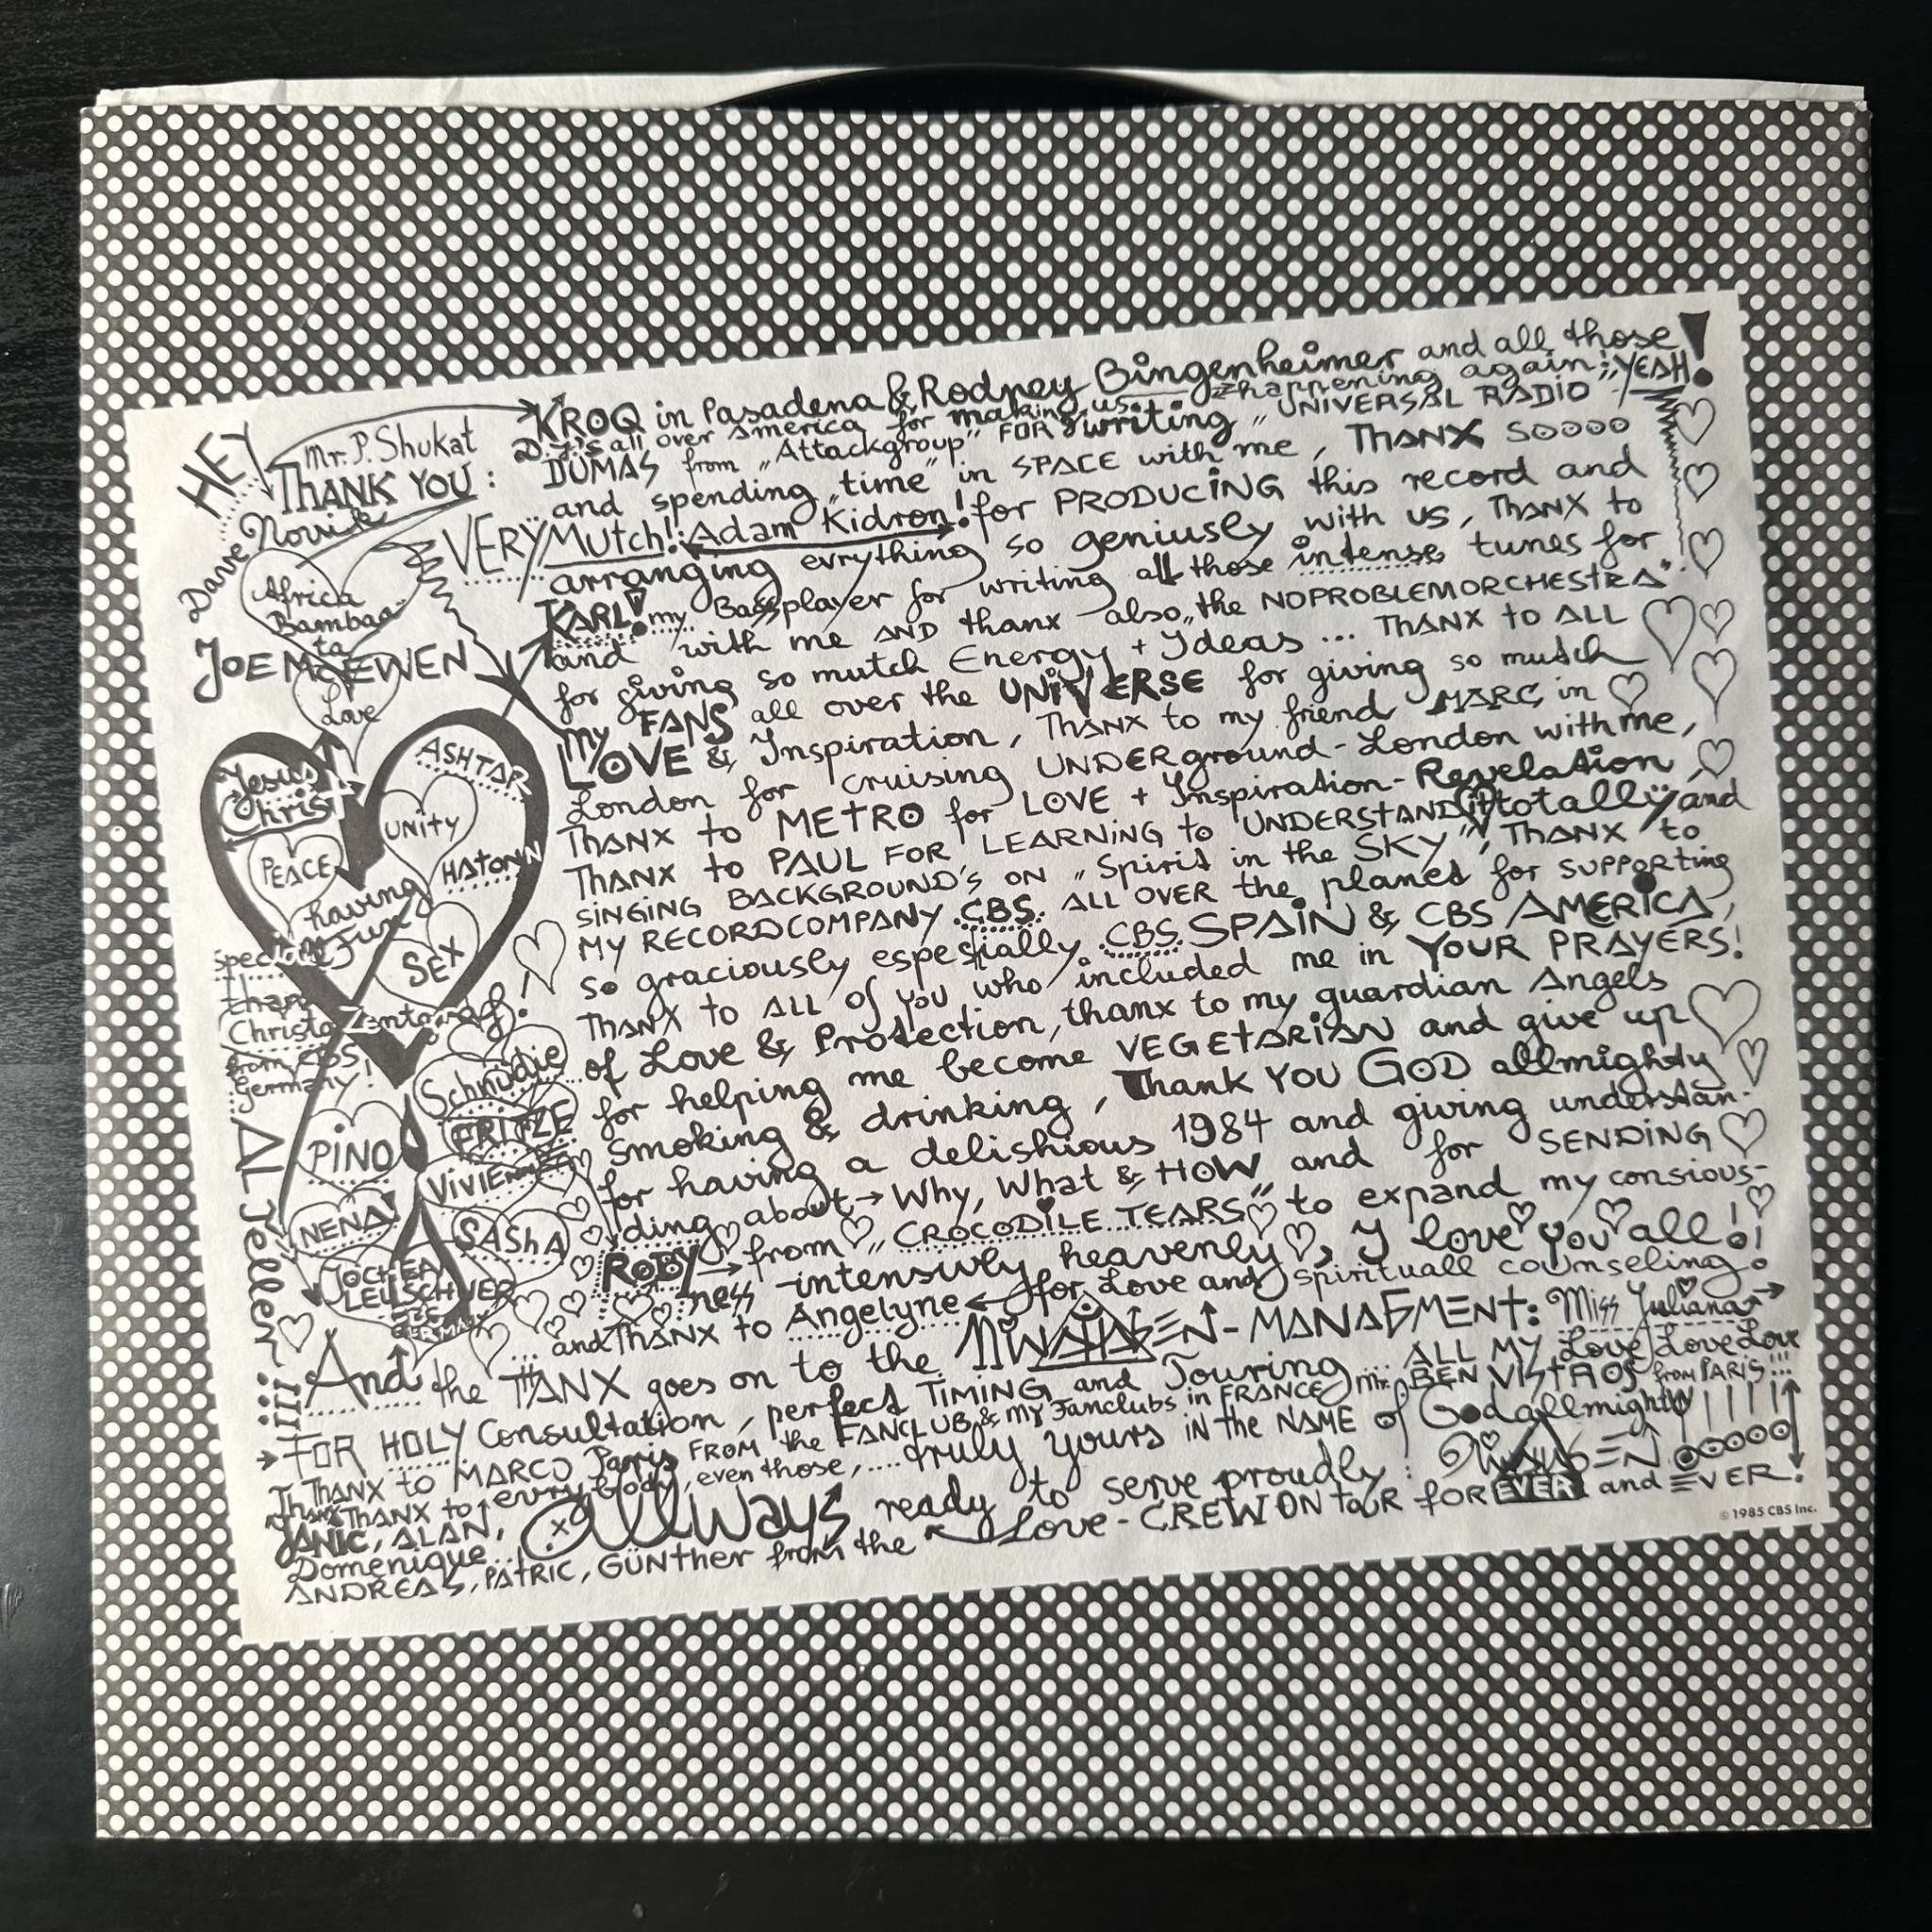 HEY
Mr. P. Shukat
THANK YOU:
Dave Novik
Africa
Bambaa-
ta
JOE McEWEN
Love
Jesus
Christ
ASHTAR
UNITY
PEACE
HATONN
having
Fun
SEX
special
thanx
Christa Zentgraf!
from CBS
Germany!
Schnudie
FRITZE
PINO
VIVIENNE
NENA
SASHA
JOCHEN
LEUSCHNER
CBS
GERMANY
AL Teller!!!
KROQ in Pasadena & Rodney Bingenheimer and all those!
D.J.'s all over America for making us happening again! "YEAH!
DUMAS from „Attackgroup" FOR writing „UNIVERSAL RADIO"
... and spending „time" in SPACE with me, THANX soooo
VERY Mutch!! Adam Kidron! for PRODUCING this record and
arranging evrything so geniusly with us, THANX to
KARL! my Bassplayer for writing all those intense tunes for
and with me AND thanx also „the NOPROBLEMORCHESTRA"
for giving so mutch Energy + Ideas ... THANX to ALL
my FANS all over the UNIVERSE for giving so mutch
LOVE & Inspiration, THANX to my friend MARC in
London for cruising UNDERground-London with me,
THANX to METRO for LOVE + Inspiration-Revelation
THANX to PAUL FOR LEARNING to UNDERSTAND it totally and
SINGING BACKGROUND'S ON „Spirit in the SKY", THANX to
MY RECORDCOMPANY CBS ALL OVER the planet for supporting
so graciously espesially CBS SPAIN & CBS AMERICA,
THANX to ALL of you who included me in YOUR PRAYERS!
...of Love & Protection, thanx to my guardian Angels
for helping me become VEGETARIAN and give up
smoking & drinking, Thank YOU GOD allmighty
for having a delishious 1984 and giving understan-
ding about → Why, What & HOW and for SENDING
ROBY → from „CROCODILE TEARS" to expand my consious-
ness -intensivly heavenly, I love you all!!
... and THANX to Angelyne ← for Love and spirituall counseling!
And the THANX goes on to the NINA HAGEN-MANAGMENT: Miss Juliana →
→ FOR HOLY Consultation, perfect TIMING and Touring ... ALL MY Love Love Love
THANX to MARCO Paris FROM the FANCLUB & my Fanclubs in FRANCE, mr. BEN VISTAOS from PARIS!!!
THANX to everybody, even those, .... truly yours in the NAME of God allmighty!!!!!
JANIC, ALAN, allways ready to serve proudly: NINA HAGEN ooooo
Domenique..
ANDREAS, PATRIC, GÜNther from the Love-CREW ON touR foREVER and EVER!
© 1985 CBS Inc.